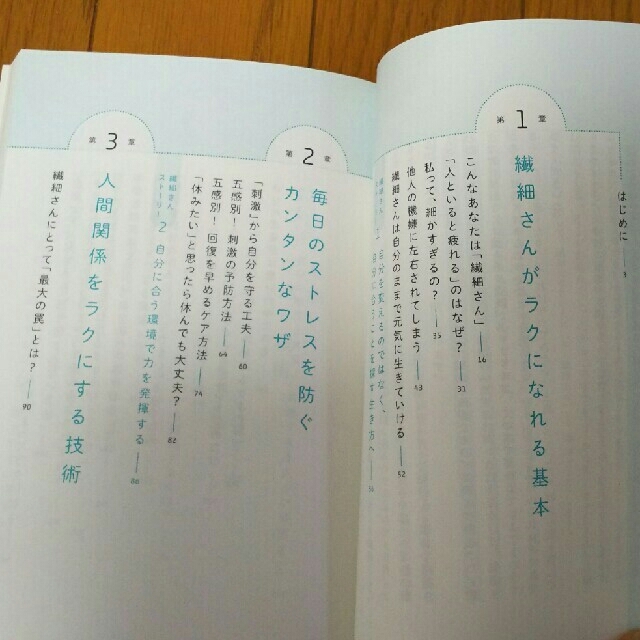 はじめに
第1章
繊細さんがラクになれる基本
こんなあなたは「繊細さん」 —— 16
「人といると疲れる」のはなぜ? —— 30
私って、細かすぎるの? —— 35
他人の機嫌に左右されてしまう —— 43
繊細さんは自分のままで元気に生きていける —— 52
自分を変えるのではなく、
第2章
毎日のストレスを防ぐ
カンタンなワザ
「刺激」から自分を守る工夫 —— 60
五感別! 刺激の予防方法 —— 64
五感別! 回復を早めるケア方法 —— 74
「休みたい」と思ったら休んでも大丈夫? —— 82
繊細さん
ストーリー
2 自分に合う環境で力を発揮する —— 86
第3章
人間関係をラクにする技術
繊細さんにとって「最大の罠」とは? —— 90